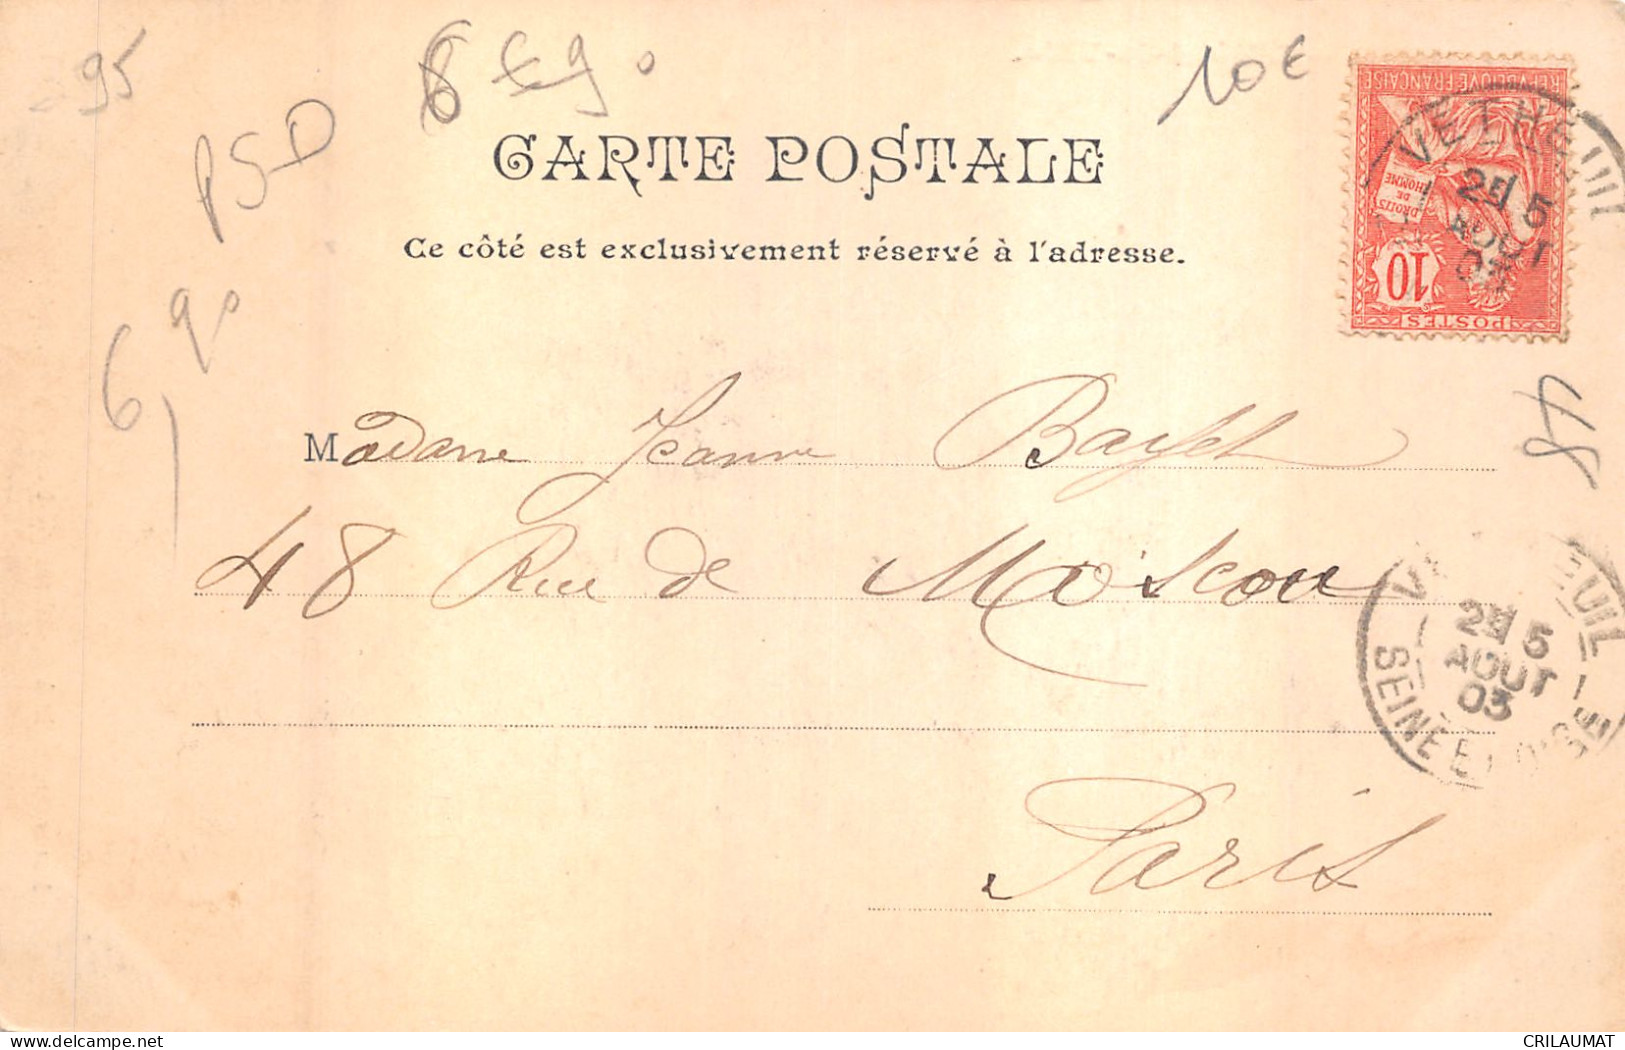 95
PSD
6,90
10€
CARTE POSTALE
Ce côté est exclusivement réservé à l'adresse.
REPUBLIQUE FRANÇAISE
DROITS
DE
L'HOMME
10
POSTES
VETHEUIL
2E 5
AOUT
03
48
Madame Jeanne
48 Rue de Moscou
Paris
VETHEUIL
2E 5
AOUT
03
SEINE ET OISE
delcampe.net
CRILAUMAT